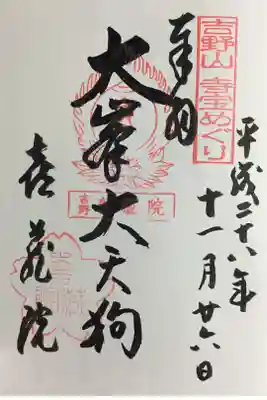 吉野山 寺宝めぐり
平成二十八年
十一月廿六日
奉拝
大峯大天狗
喜蔵院